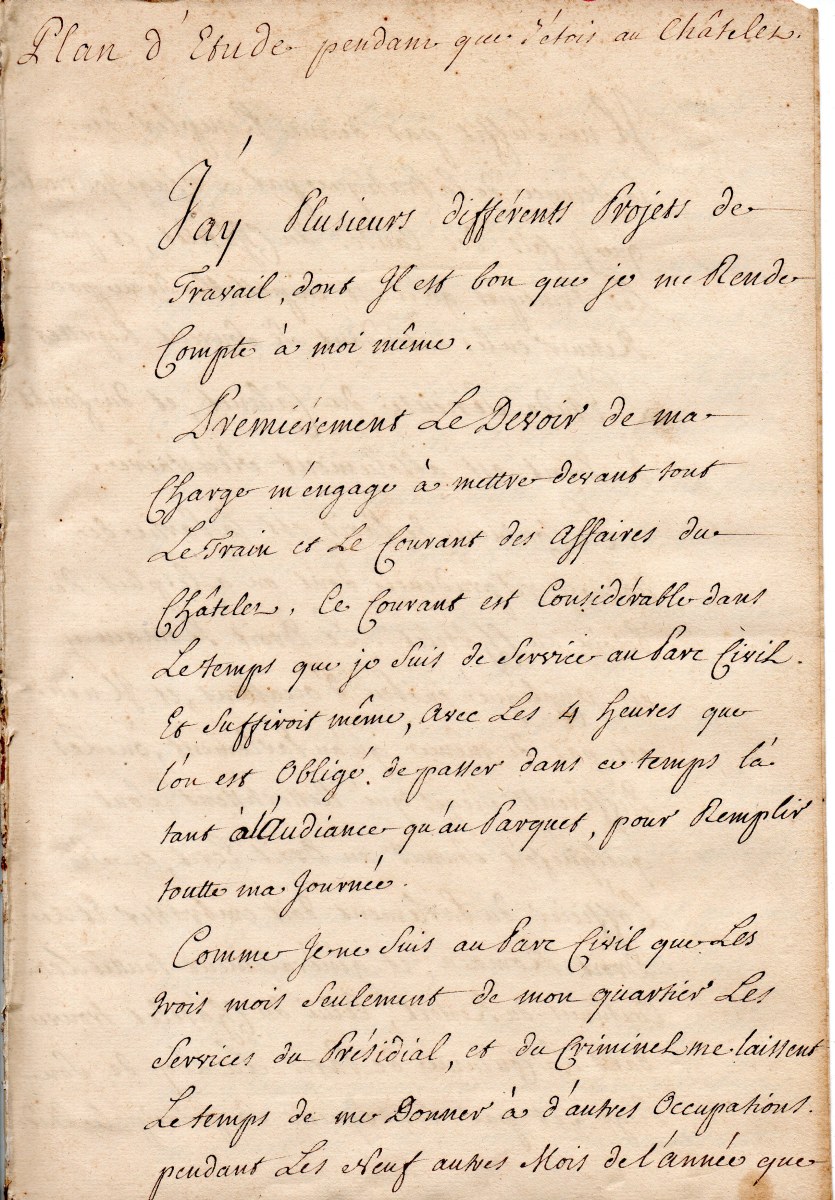 Plan d'Etude pendant que J'étois au Châtelet.
J'ay Plusieurs différents Projets de
Travail, dont Il est bon que je me Rende
Compte à moi même.
Premiérement Le Devoir de ma
Charge m'engage à mettre devant tout
Le Train et Le Courant des Affaires du
Châtelet. Ce Courant est Considérable dans
Le temps que je Suis de Service au Parc Civil.
Et Suffiroit même, avec Les 4 heures que
l'on est Obligé de passer dans ce temps là
tant à l'Audiance qu'au Parquet, pour Remplir
toutte ma Journée.
Comme Je ne Suis au Parc Civil que Les
trois mois Seulement de mon quartier Les
Services du Présidial, et du Criminel me laissent
Le temps de me Donner à d'autres Occupations.
pendant Les Neuf autres Mois de l'année que